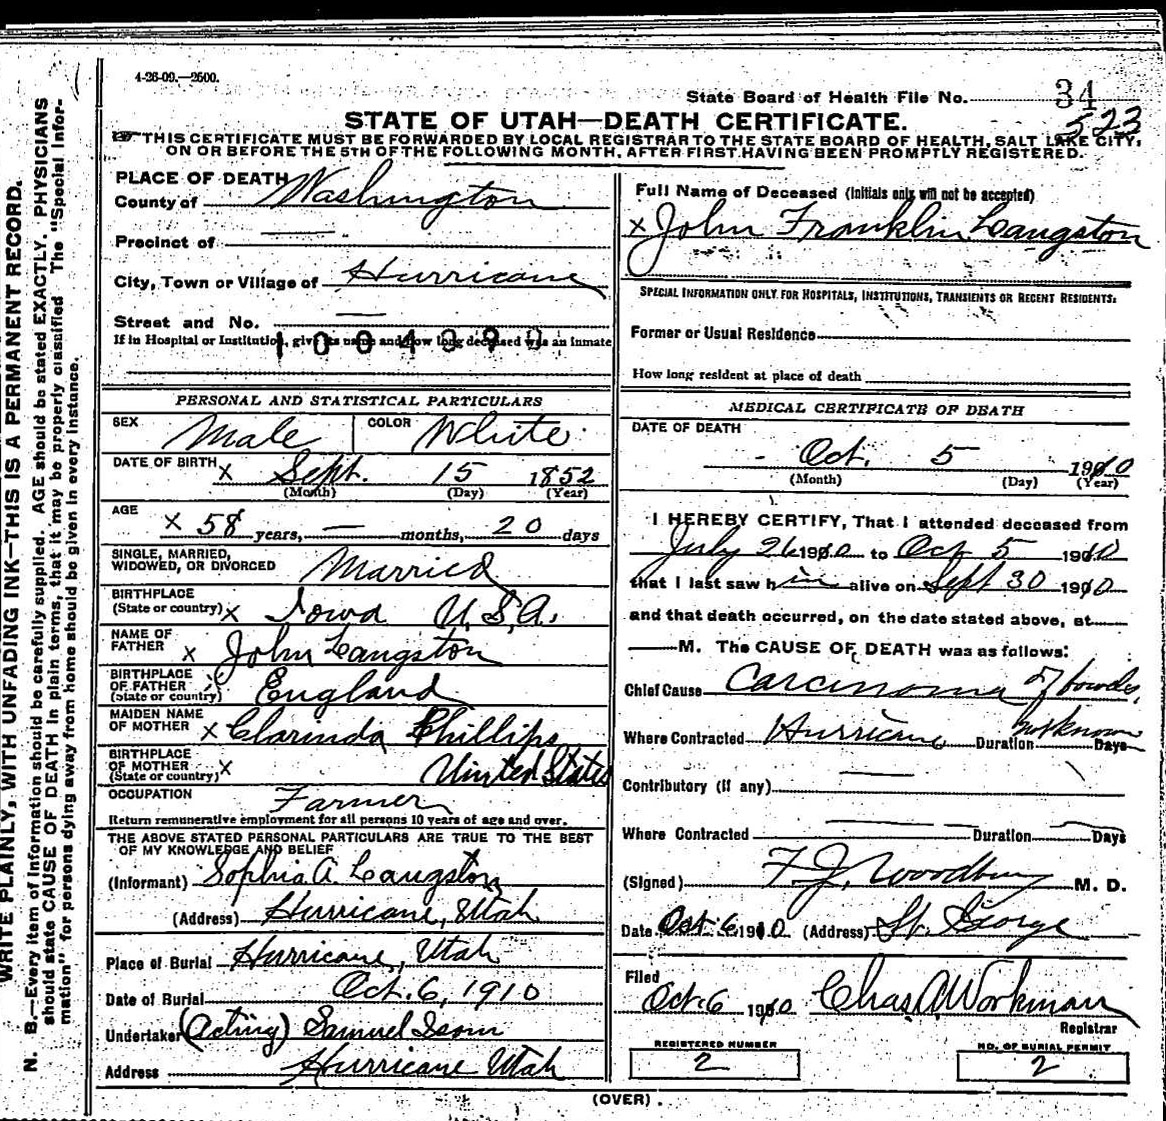 4-26-09.—2500.
State Board of Health File No. 34
523
STATE OF UTAH—DEATH CERTIFICATE.
THIS CERTIFICATE MUST BE FORWARDED BY LOCAL REGISTRAR TO THE STATE BOARD OF HEALTH, SALT LAKE CITY,
ON OR BEFORE THE 5TH OF THE FOLLOWING MONTH, AFTER FIRST HAVING BEEN PROMPTLY REGISTERED.
WRITE PLAINLY, WITH UNFADING INK—THIS IS A PERMANENT RECORD.
N. B.—Every item of information should be carefully supplied. AGE should be stated EXACTLY. PHYSICIANS
should state CAUSE OF DEATH in plain terms, that it may be properly classified. The "Special Infor-
mation" for persons dying away from home should be given in every instance.
PLACE OF DEATH
County of Washington
Precinct of —
City, Town or Village of Hurricane
Street and No. —
If in Hospital or Institution, give its name and how long deceased was an inmate
PERSONAL AND STATISTICAL PARTICULARS
SEX Male COLOR White
DATE OF BIRTH x Sept. 15 1852
(Month) (Day) (Year)
AGE
x 58 years, — months, 20 days
SINGLE, MARRIED,
WIDOWED, OR DIVORCED Married
BIRTHPLACE
(State or country) x Iowa U.S.A.
NAME OF
FATHER x John Langston
BIRTHPLACE
OF FATHER
(State or country) England
MAIDEN NAME
OF MOTHER x Clarinda Phillips
BIRTHPLACE
OF MOTHER
(State or country) x United States
OCCUPATION Farmer
Return remunerative employment for all persons 10 years of age and over.
THE ABOVE STATED PERSONAL PARTICULARS ARE TRUE TO THE BEST
OF MY KNOWLEDGE AND BELIEF
(Informant) Sophia A. Langston
(Address) Hurricane, Utah
Place of Burial Hurricane, Utah
Date of Burial Oct. 6, 1910
Undertaker (Acting) Samuel Isom
Address Hurricane Utah
Full Name of Deceased (Initials only will not be accepted)
x John Franklin Langston
SPECIAL INFORMATION ONLY FOR HOSPITALS, INSTITUTIONS, TRANSIENTS OR RECENT RESIDENTS:
Former or Usual Residence
How long resident at place of death
MEDICAL CERTIFICATE OF DEATH
DATE OF DEATH
Oct. 5 1910
(Month) (Day) (Year)
I HEREBY CERTIFY, That I attended deceased from
July 26 1910 to Oct 5 1910
that I last saw him alive on Sept 30 1910
and that death occurred, on the date stated above, at
—M. The CAUSE OF DEATH was as follows:
Chief Cause Carcinoma of bowels
Where Contracted Hurricane Duration not known Days
Contributory (if any) —
Where Contracted — Duration — Days
(Signed) F. J. Woodbury M. D.
Date Oct 6 1910 (Address) St. George
Filed
Oct 6 1910 Chas. A. Workman
Registrar
REGISTERED NUMBER
2
NO. OF BURIAL PERMIT
2
(OVER)